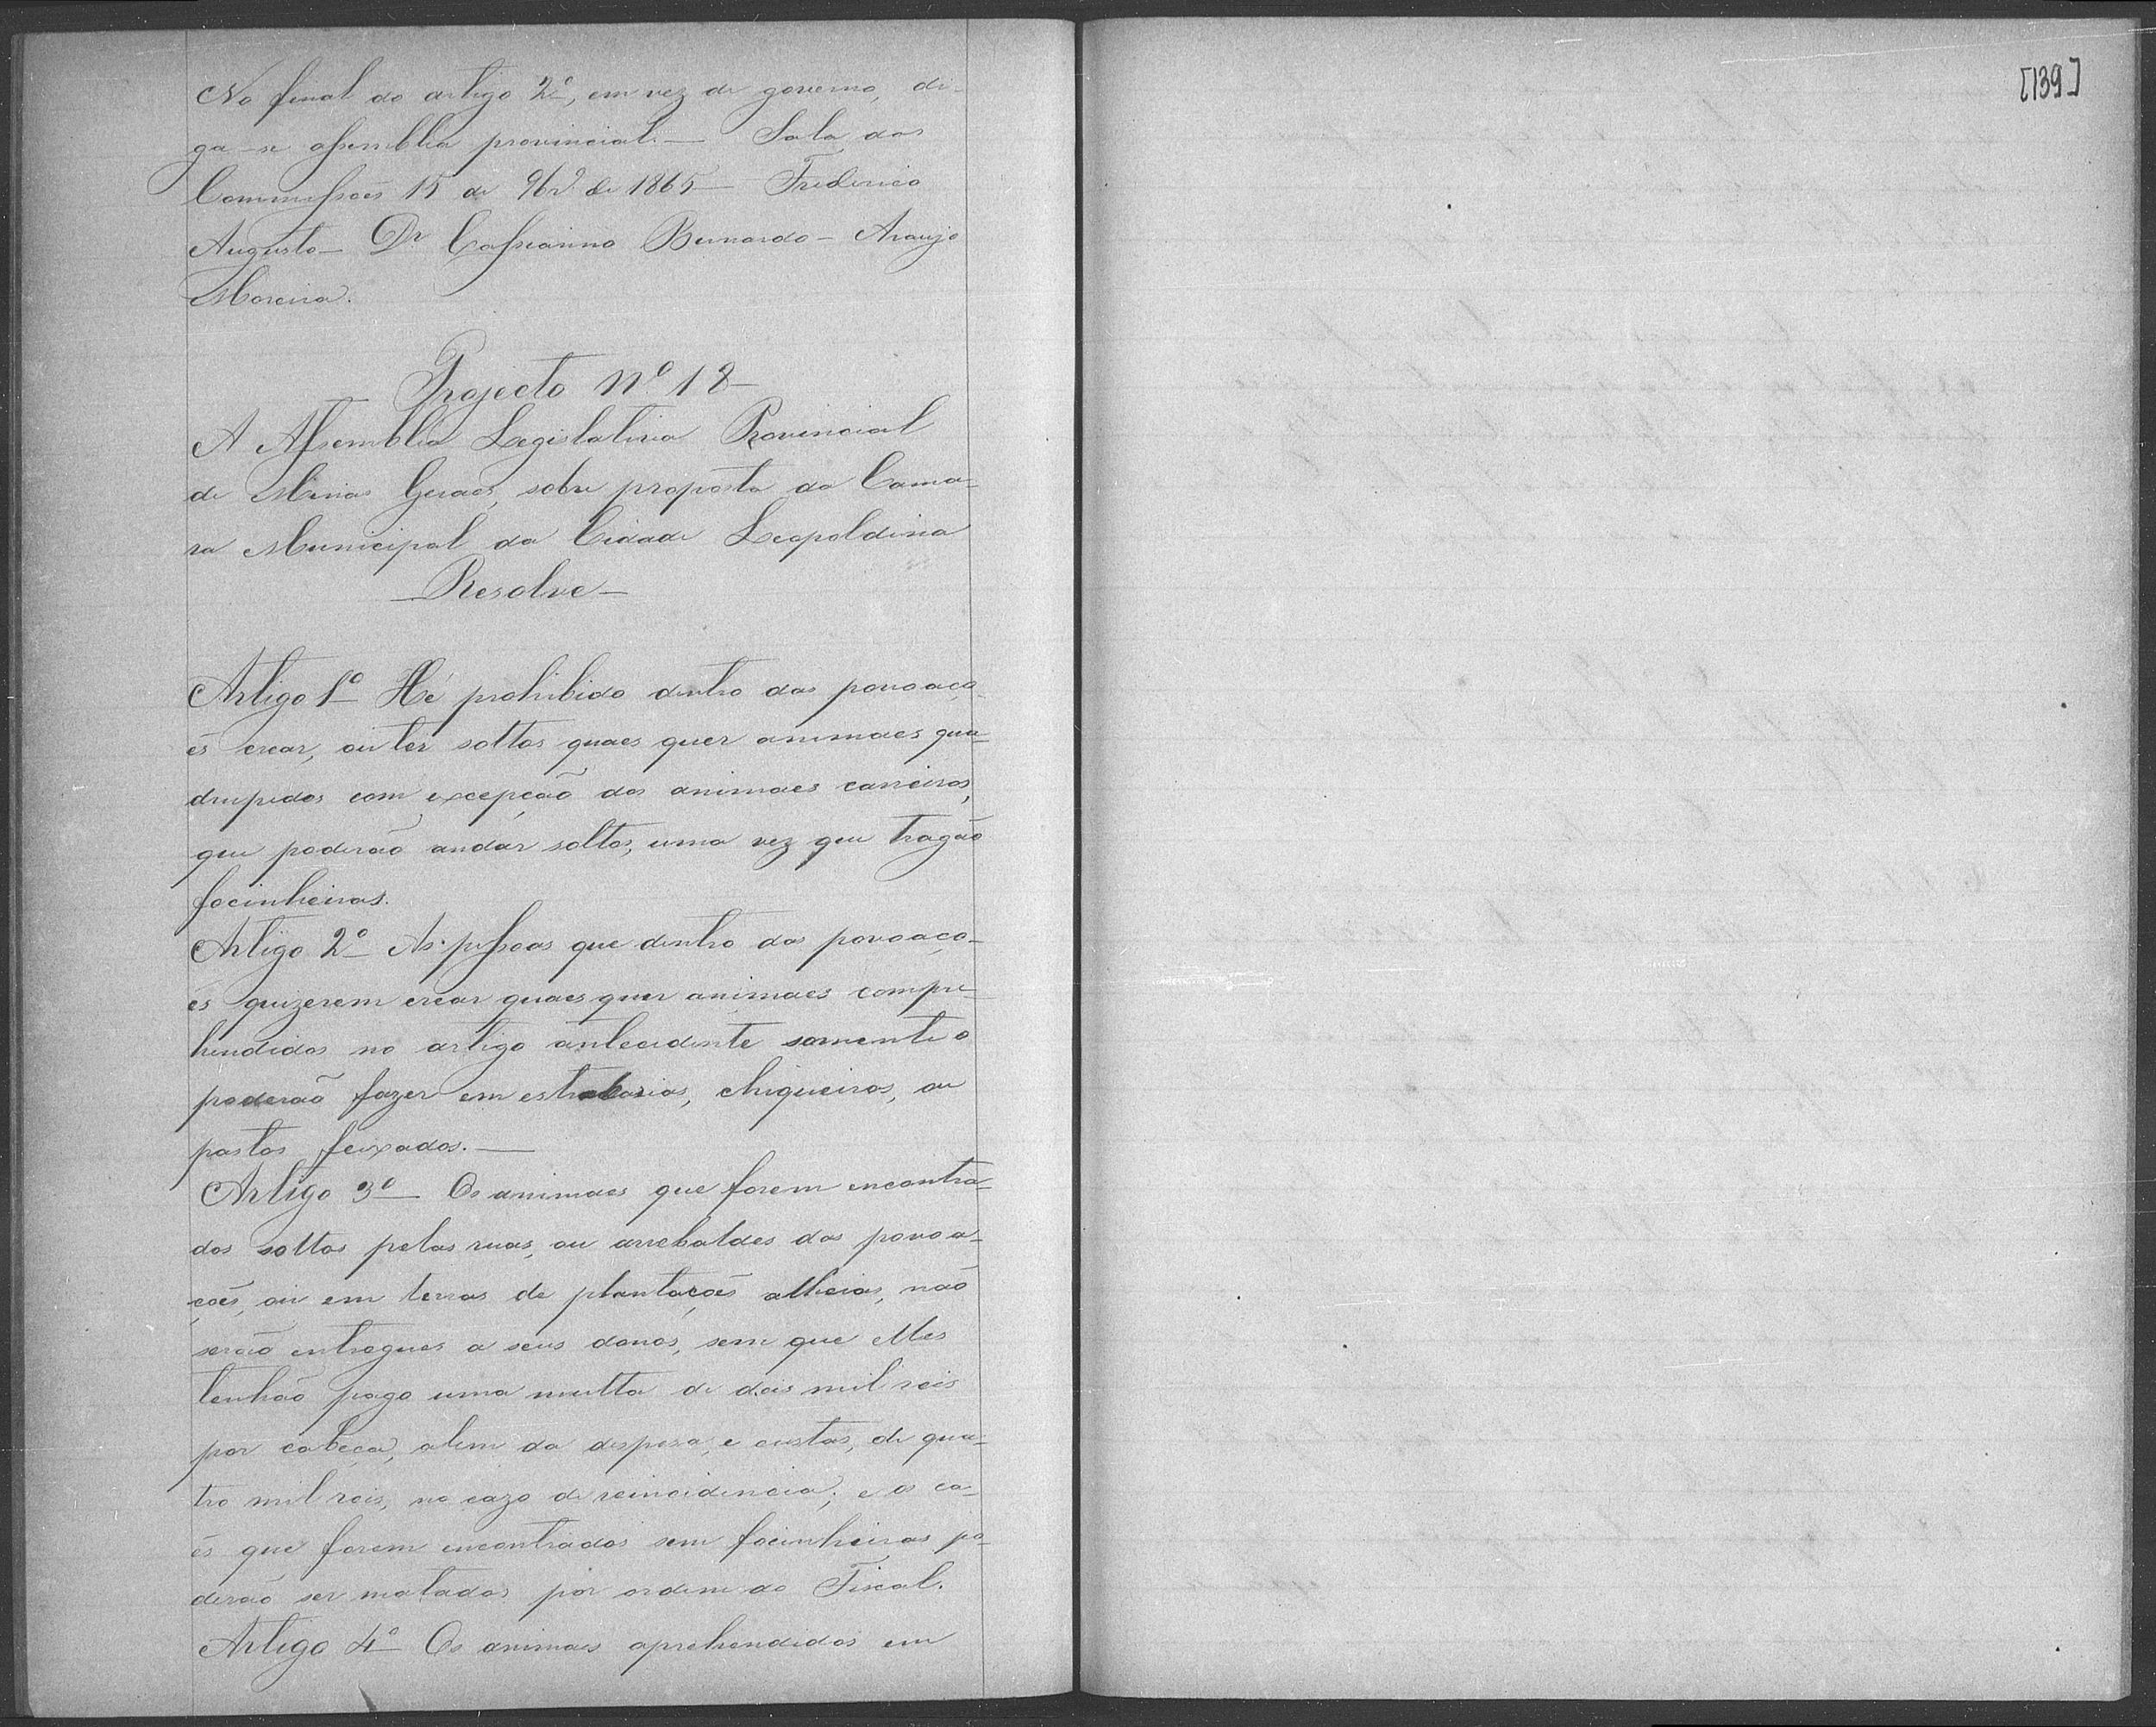 [139]
No final do artigo 2º, em vez de governo, di-
ga-se assemblea provincial. — Sala das
Commissões 15 de 9brº de 1865 — Frederico
Augusto — Dr Cassianno Bernardo — Araujo
Moreira.
Projecto Nº 18 —
A Assemblea Legislativa Provincial
de Minas Geraes, sobre proposta da Cama-
ra Municipal da Cidade Leopoldina
— Resolve —
Artigo 1º Hé prohibido dentro das povoaço-
ẽs crear, ou ter soltos quaes quer animaes qua-
drupedos com excepção dos animaes carreiros,
que poderão andar soltos, uma vez que tragão
focinheiras.
Artigo 2º As pessoas que dentro das povoaço-
ẽs quizerem crear quaes quer animaes compre-
hendidos no artigo antecedente somente o
poderão fazer em estrabarias, chiqueiros, ou
pastos feixados. —
Artigo 3º — Os animaes que forem encontra-
dos soltos pelas ruas, ou arrebaldes das povoa-
ções, ou em terras de plantações alheias, não
serão entregues a seus donos, sem que elles
tenhão pago uma multa de dois mil reis
por cabeça, alem da despesa, e custas, de qua-
tro mil reis, no cazo de reincidencia; e os ca-
ẽs que forem encontrados sem focinheiras po-
derão ser matados por ordem do Fiscal.
Artigo 4º Os animaes aprehendidos em